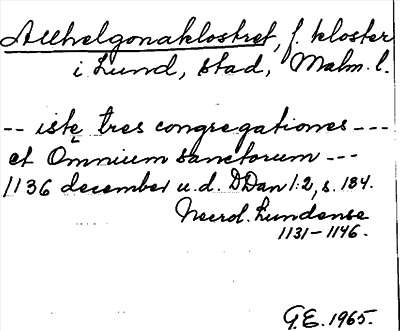 Allhelgonaklostret, f. kloster
i Lund, stad, Malm. l.
-- istę tres congregationes ---
et Omnium sanctorum ---
1136 december u.d. DDan 1:2, s. 134.
Necrol. Lundense
1131-1146.
G.E. 1965.